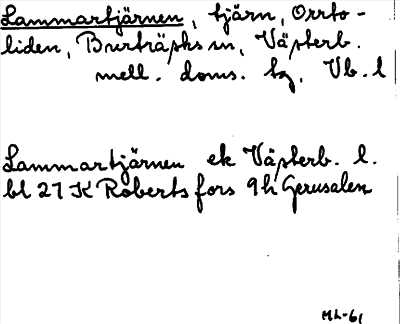 Lammartjärnen, tjärn, Orrto-
liden, Burträsks sn, Västerb.
mell. doms. tg, Vb. l
Lammartjärnen ek Västerb. l.
bl 21 K Robertsfors 9h Gerusalem
ML-61